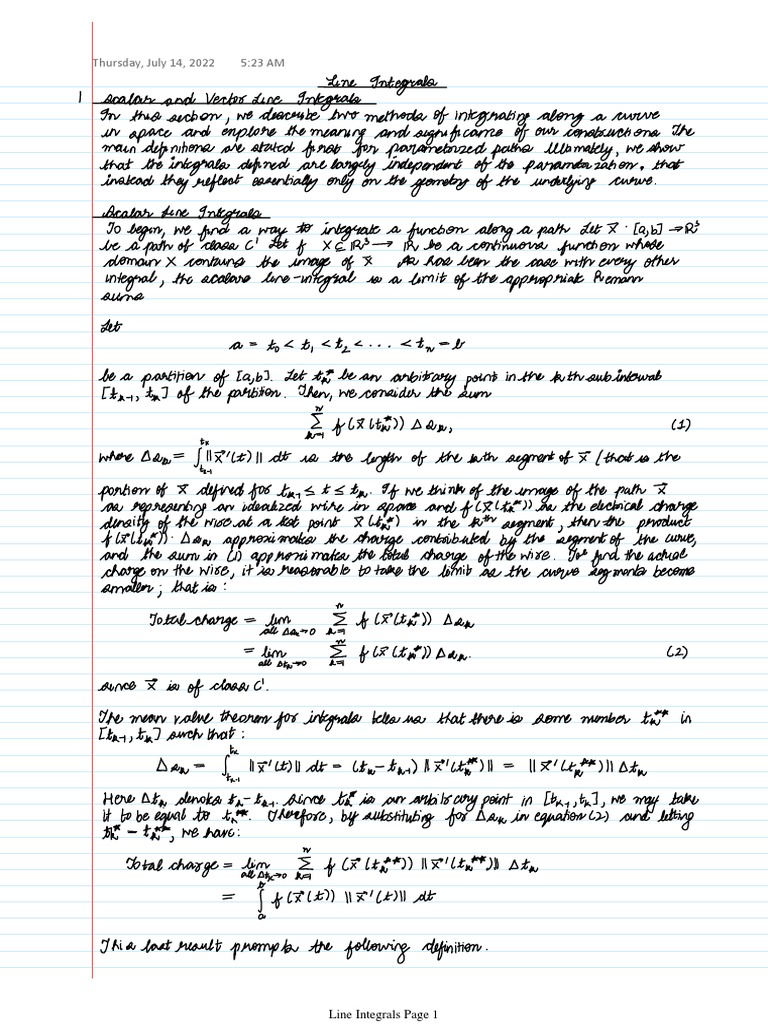 Thursday, July 14, 2022 5:23 AM
Line Integrals
1 Scalar and Vector Line Integrals
In this section, we describe two methods of integrating along a curve
in space and explore the meaning and significance of our constructions The
main definitions are stated first for parametrized paths Ultimately, we show
that the integrals defined are largely independent of the parametrization, that
instead they reflect essentially only on the geometry of the underlying curve.
Scalar Line Integrals
To begin, we find a way to integrate a function along a path Let x⃗ : [a,b] → R³
be a path of class C' Let f X ⊆ R³ → R be a continuous function whose
domain X contains the image of x⃗ As has been the case with every other
integral, the scalar line-integral is a limit of the appropriate Riemann
sums
Let
a = t₀ < t₁ < t₂ < ... < tₙ = b
be a partition of [a,b]. Let tₖ* be an arbitrary point in the kth subinterval
[tₖ₋₁, tₖ] of the partition. Then, we consider the sum
∑ₖ₌₁ⁿ f(x⃗(tₖ*)) Δsₖ, (1)
where Δsₖ = ∫ₜₖ₋₁^tₖ ||x⃗'(t)|| dt is the length of the kth segment of x⃗ (that is the
portion of x⃗ defined for tₖ₋₁ ≤ t ≤ tₖ. If we think of the image of the path x⃗
as representing an idealized wire in space and f(x⃗(tₖ*)) as the electrical charge
density of the wire at a test point x⃗(tₖ*) in the kᵗʰ segment, then the product
f(x⃗(tₖ*)) · Δsₖ approximates the charge contributed by the segment of the curve,
and the sum in (1) approximates the total charge of the wire. To find the actual
charge on the wire, it is reasonable to take the limit as the curve segments become
smaller; that is:
Total charge = lim all Δsₖ→0 ∑ₖ₌₁ⁿ f(x⃗(tₖ*)) Δsₖ
= lim all Δtₖ→0 ∑ₖ₌₁ⁿ f(x⃗(tₖ*)) Δsₖ. (2)
since x⃗ is of class C'.
The mean value theorem for integrals tells us that there is some number tₖ** in
[tₖ₋₁, tₖ] such that:
Δsₖ = ∫ₜₖ₋₁^tₖ ||x⃗'(t)|| dt = (tₖ - tₖ₋₁) ||x⃗'(tₖ**)|| = ||x⃗'(tₖ**)|| Δtₖ
Here Δtₖ denotes tₖ - tₖ₋₁. Since tₖ* is an arbitrary point in [tₖ₋₁, tₖ], we may take
it to be equal to tₖ**. Therefore, by substituting for Δsₖ in equation (2) and letting
tₖ* = tₖ**, we have:
Total charge = lim all Δtₖ→0 ∑ₖ₌₁ⁿ f(x⃗(tₖ**)) ||x⃗'(tₖ**)|| Δtₖ
= ∫ₐᵇ f(x⃗(t)) ||x⃗'(t)|| dt
This last result prompts the following definition.
Line Integrals Page 1